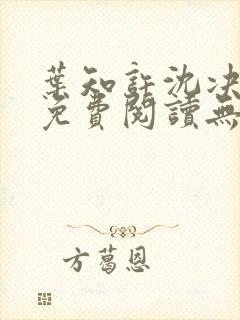 葉知許沈決
免費閱讀無
方葛恩